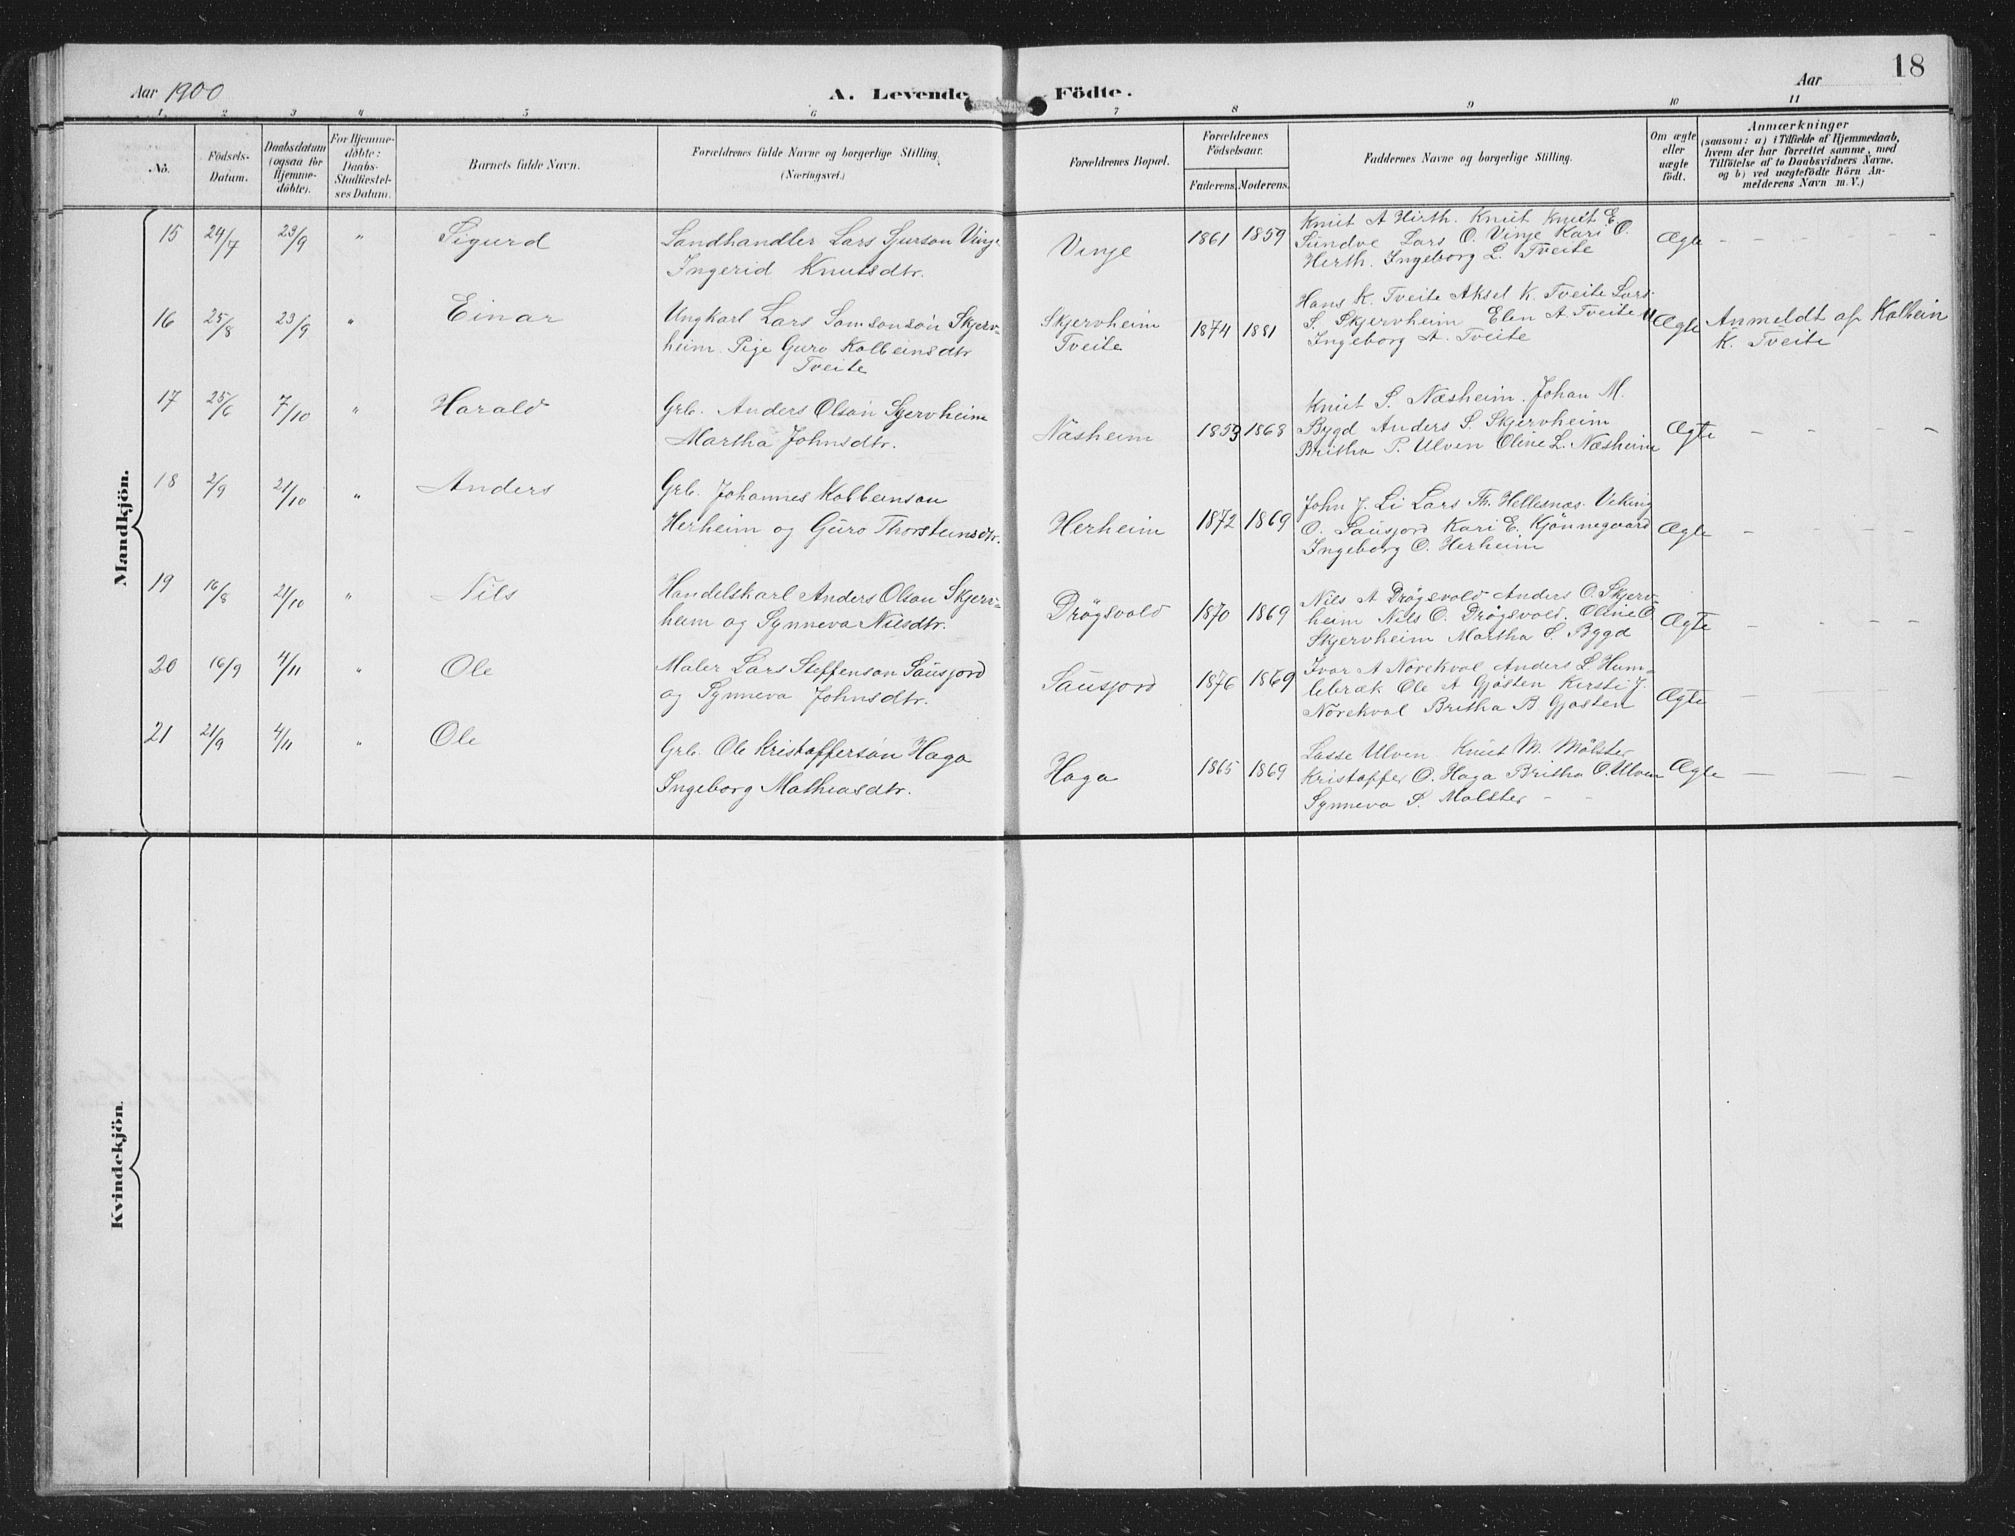 18
Aar 1900 A. Levende Födte. Aar
1 2 3 4 5 6 7 8 9 10 11
No.
Födsels-Datum.
Daabsdatum (ogsaa for Hjemme-döbte).
For Hjemme-döbte: Daabs-Stadfæstel-ses Datum.
Barnets fulde Navn.
Forældrenes fulde Navne og borgerlige Stilling. (Næringsvei.)
Forældrenes Bopæl.
Forældrenes Födselsaar.
Faderens. Moderens.
Faddernes Navne og borgerlige Stilling.
Om ægte eller uægte födt.
Anmærkninger
(saasom: a) i Tilfælde af Hjemmedaab, hvem der har forrettet samme, med Tilföielse af to Daabsvidners Navne, og b) ved uægtefödte Börn Anmelderens Navn m. V.)
Mandkjön.
15 24/7 23/9 " Sigurd
Landhandler Lars Sjurson Vinje
Ingerid Knutsdtr.
Vinje 1861 1859
Knut A Hirth. Knut Knut E.
Sundve Lars O. Vinje Kari O.
Herth. Ingeborg L. Tveite
Ægte - - - - -
16 25/8 23/9 " Einar
Ungkarl Lars Samsonson Skjerv-
heim. Pige Guro Kolbeinsdtr
Tveite
Skjervheim
Tveite
1874 1881
Hans K. Tveite Aksel K. Tveite Lars
S. Skjervheim Elen A Tveite
Ingeborg A. Tveite
Ægte
Anmeldt af Kolbein
K. Tveite
17 25/6 7/10 " Harald
Grb. Anders Olson Skjervheim
Martha Johnsdtr.
Näsheim 1853 1868
Knut S. Næsheim. Johan M.
Bygd Anders S Skjervheim
Britha P. Ulven Oline L. Næsheim
Ægte - - - - -
18 2/9 21/10 " Anders
Grb. Johannes Kolbeinson
Herheim og Guro Thorsteinsdtr.
Herheim 1872 1869
John J. Li Lars Th. Hellesnæs. Viking
O. Sausjord Kari E. Kjönnegaard
Ingeborg O. Herheim
Ægte - - - - -
19 16/8 21/10 " Nils
Handelskarl Anders Olson Skjerv-
heim og Synneva Nilsdtr.
Drögsvold 1870 1869
Nils A Drögsvold Anders O. Skjerv-
heim Nils O. Drögsvold. Oline O
Skjervheim Martha S Bygd
Ægte - - - - -
20 16/9 4/11 " Ole
Maler Lars Steffenson Sausjord
og Synneva Johnsdtr.
Sausjord 1876 1869
Ivar A Nörekval Anders L Hum-
lebræk Ole A Gjösten Kirsti J.
Nörekval Britha B Gjosten
Ægte - - - - -
21 21/9 4/11 " Ole
Grb. Ole Kristofferson Haga
Ingeborg Mathiasdtr.
Haga 1865 1869
Lasse Ulven Knut M. Mölster
Kristoffer O. Haga Britha O. Ulven
Synneva S. Molster - -
Ægte - - - - -
Kvindekjön.